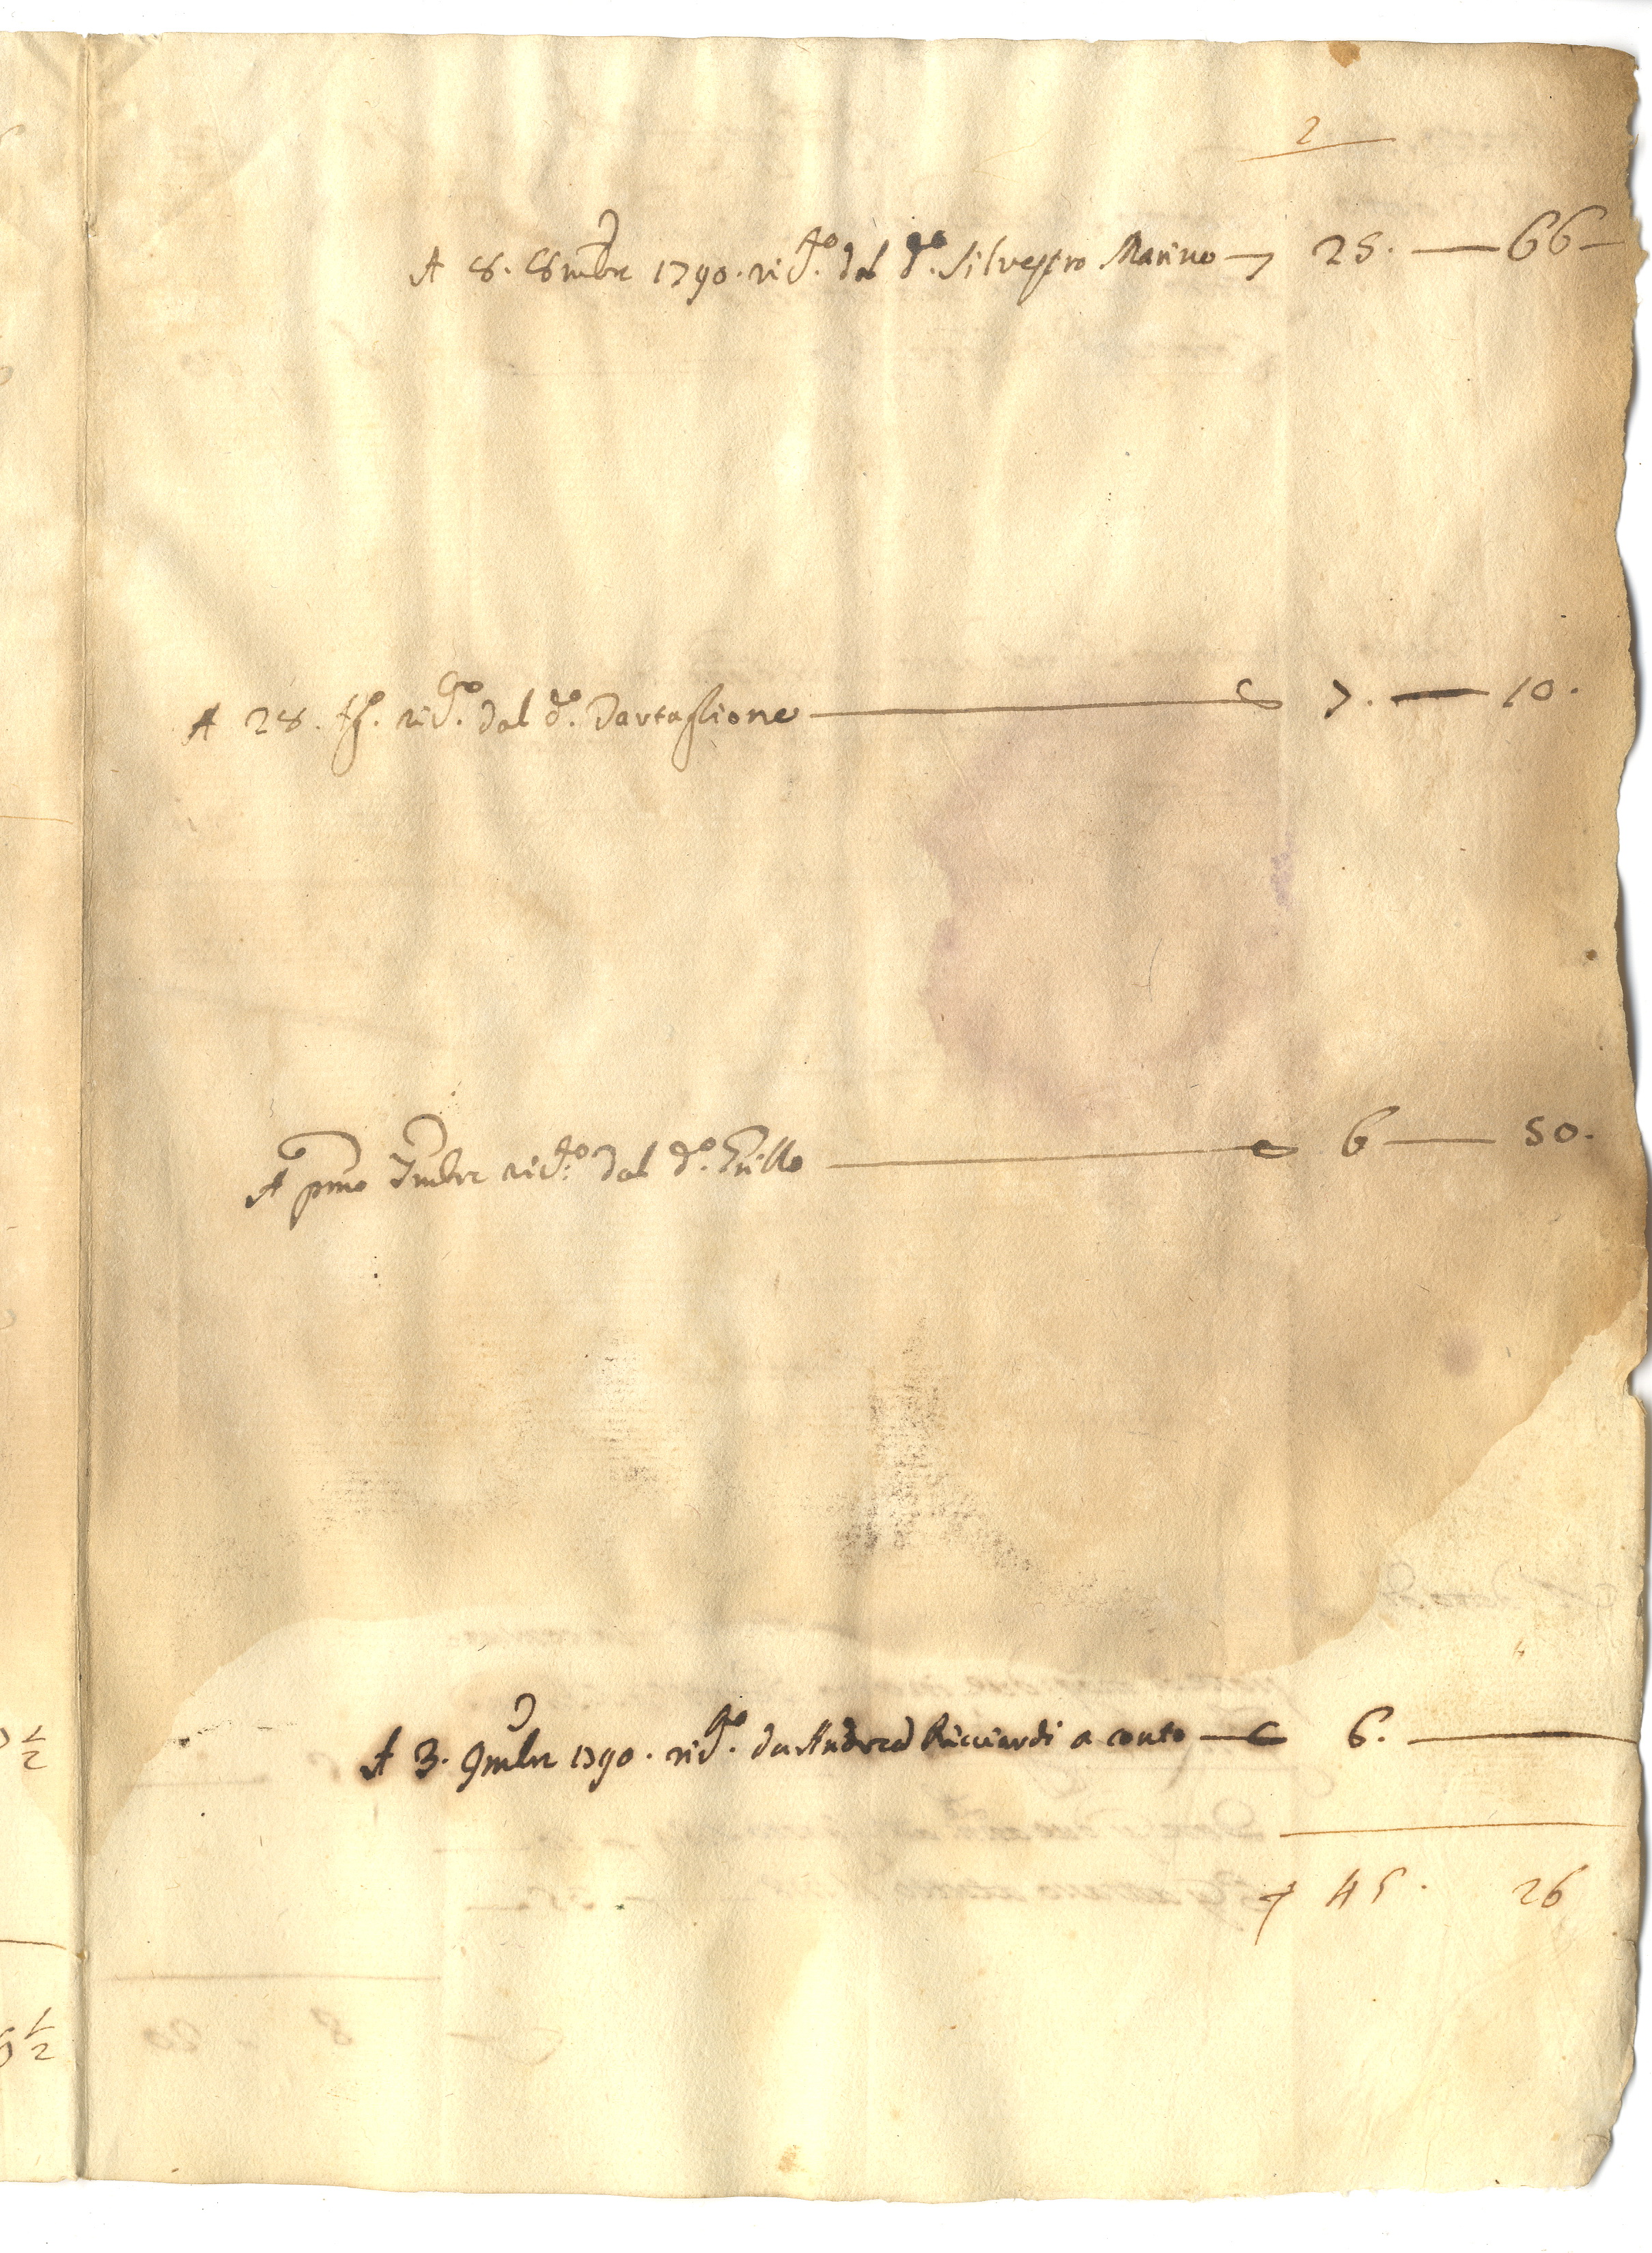 2
A 8. 8mbre 1790. ric.to dal d.o Silvestro Marino — 25. — 66 —
A 28. d.o ric.to dal d.o Dartaglione — 7. — 10.
A pmo 7mbre ric.to dal d.o — 6 — 50.
A 3. 9mbre 1790. ric.to da Andrea Ricciardi a conto — 6. —
45. 26